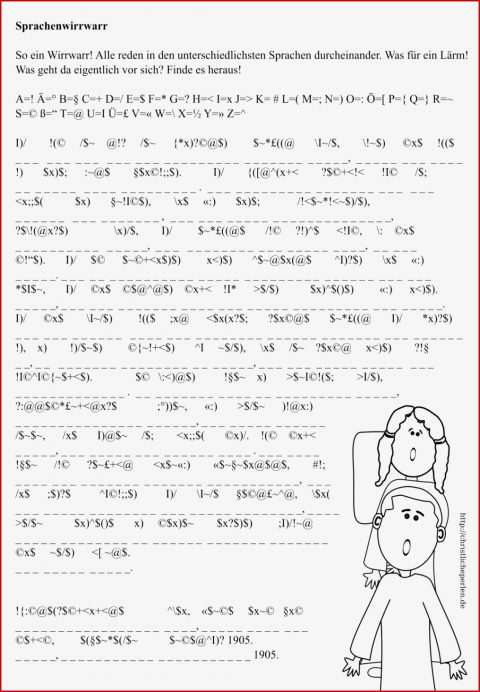 Sprachenwirrwarr
So ein Wirrwarr! Alle reden in den unterschiedlichsten Sprachen durcheinander. Was für ein Lärm!
Was geht da eigentlich vor sich? Finde es heraus!
A=! Ä=° B=§ C=+ D=/ E=$ F=* G=? H=< I=x J=> K= # L=( M=; N=) O=: Ö=[ P={ Q=} R=~
S=© ß=“ T=@ U=I Ü=£ V=« W=\ X=½ Y=» Z=^
I)/ !(© /$~ @!? /$~ {*x)?©@$) $~*£((@ \I~/$, \!~$) ©x$ !(($
!) $x)$; :~@$ §$x©!;;$). I)/ {([@^(x+< ?$©+<!< !I© /$;
<x;;$( $x) §~!I©$), \x$ «:) $x)$; /!<$~*!<~$)/$),
?$\!(@x?$) \x)/$, I)/ $~*£((@$ /!© ?!)^$ <!I©, \: ©x$
©!“$). I)/ $© $~©+<x$)$) x<)$) ^$~@$x(@$ ^I)?$) \x$ «:)
*$I$~, I)/ ©x$ ©$@^@$) ©x+< !I* >$/$) $x)^$()$) «:) x<)$).
I)/ ©x$ \I~/$) !(($ ;x@ <$x(x?$; ?$x©@$ $~*£((@ I)/ *x)?$)
!), x) !)/$~$) ©{~!+<$) ^I ~$/$), \x$ /$~ ?$x©@ x<)$) ?!§
!I©^I©{~$+<$). $© \:<)@$) !§$~ x) >$~I©!($; >I/$),
?:@@$©*£~+<@x?$ ;°))$~, «:) >$/$~ )!@x:)
/$~$~, /x$ I)@$~ /$; <x;;$( ©x)/. !(© ©x+<
!§$~ /!© ?$~£+<@ <x$~«:) «$~§~$x@$@$, #!;
/x$ ;$)?$ ^I©!;;$) I)/ \I~/$ §$©@£~^@, \$x(
>$/$~ $x)^$()$ x) ©$x)$~ $x?$)$) ;I)/!~@
©x$ ~$/$) <[~@$.
!{:©@$(?$©+<x+<@$ ^\$x, «$~©$ $x~© §x©
©$+<©, $(§$~*$(/$~ $~©$@^I)? 1905.
1905.
http://christlicheperlen.de